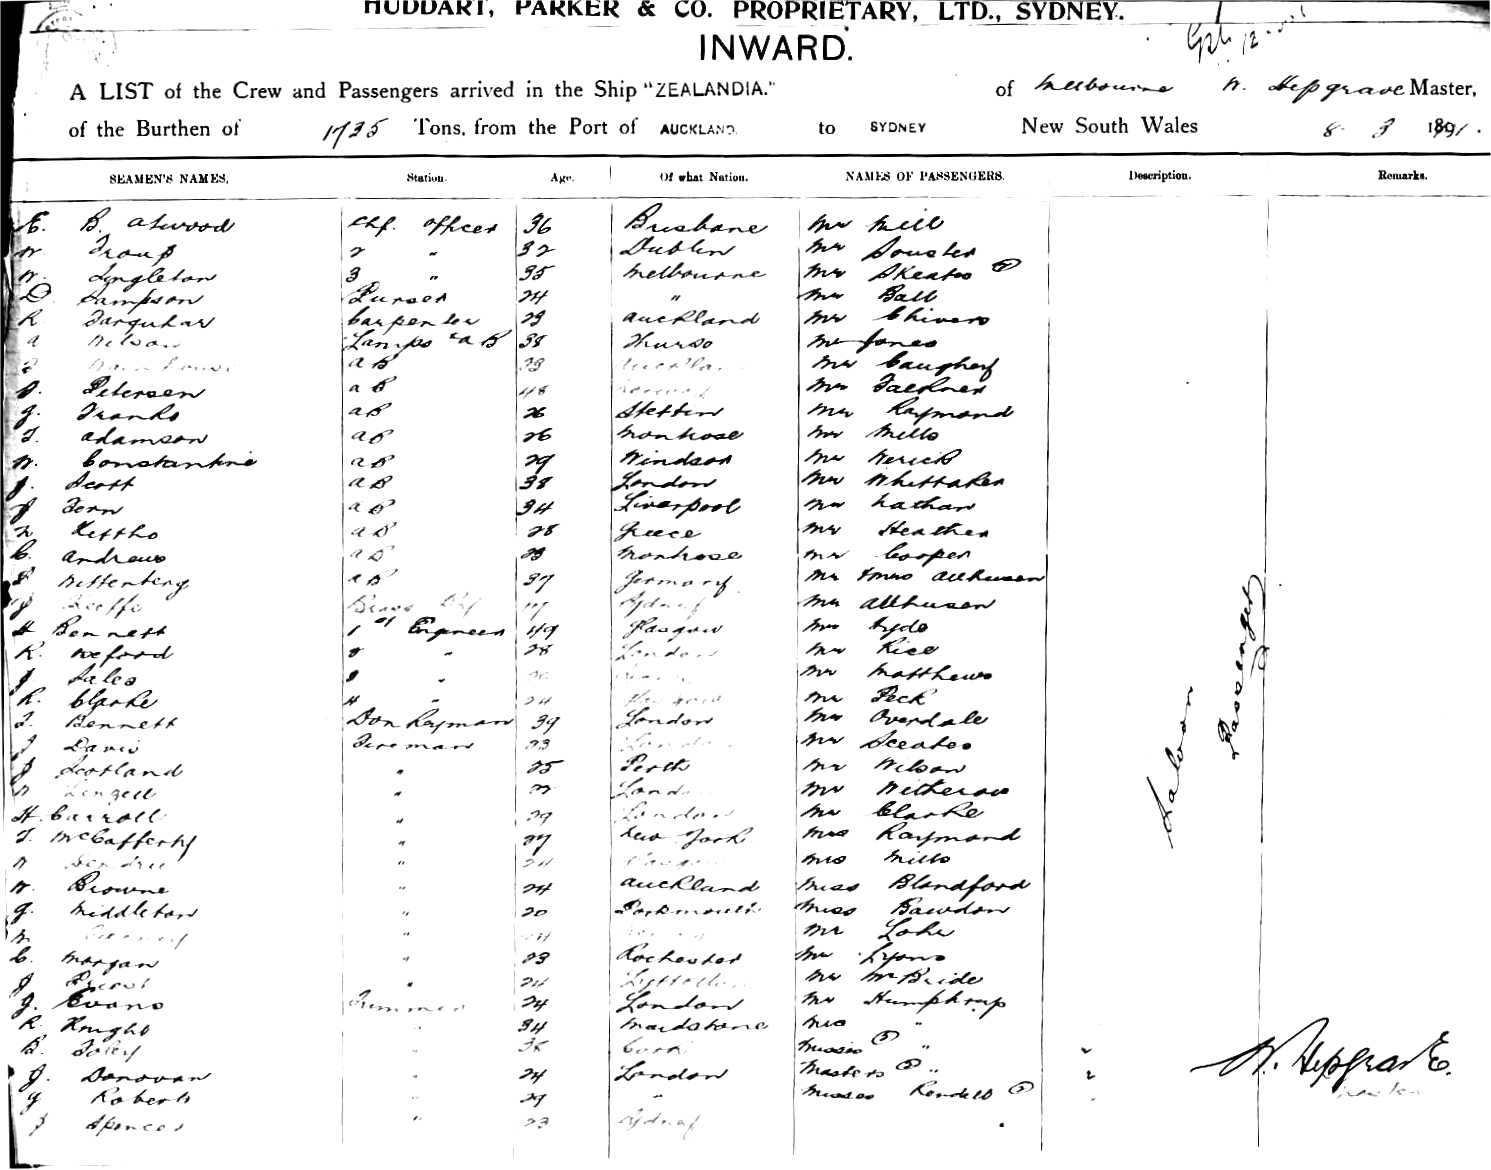 HUDDART, PARKER & CO. PROPRIETARY, LTD., SYDNEY.
INWARD.
A LIST of the Crew and Passengers arrived in the Ship "ZEALANDIA." of Melbourne W. Hepgrave Master,
of the Burthen of 1735 Tons, from the Port of AUCKLAND. to SYDNEY New South Wales 8 3
SEAMEN'S NAMES, Station. Age. Of what Nation. NAMES OF PASSENGERS. Description. Remarks.
E. B. Atwood Chf. Officer 36 Brisbane Mr Mill
W. Troup 2 " 32 Dublin Mr Souster
W. Singleton 3 " 35 Melbourne Mr Skeates
D. Sampson Purser 24 " Mr Ball
R. Farquhar Carpenter 23 Auckland Mr Chivers
A Wilson Lamps & AB 38 Thurso Mr Jones
AB 23 Auckland Mr Caughey
P. Petersen AB 48 Norway Mr Faulkner
J. Franks AB 26 Stettin Mr Raymond
T. Adamson AB 26 Montrose Mr Mills
W. Constantine AB 29 Windsor Mr Kerick
J. Scott AB 38 London Mr Whittaker
J Fern AB 34 Liverpool Mr Nathan
AB 28 Greece Mr Heather
C. Andrews AB 23 Montrose Mr Cooper
P Wittenberg AB 37 Germany Mr & Mrs Allhusen
J Sydney Mr Allhusen
H Bennett 1st Engineer 49 Glasgow Mr Hyde
R. Oxford 2 " 28 London Mr Rice
J Sales 3 " Mr Matthews
R. Clarke 4 " 24 Mr Peck
T. Bennett Donkeyman 39 London Mr Overdale
J Davis Fireman 23 London Mr Sceates
J Scotland " 25 Perth Mr Wilson
" London Mr Witherow
H. Carroll " 29 London Mr Clarke
T. McCafferty " 27 New York Mrs Raymond
" 24 Mrs Mills
W. Browne " 24 Auckland Miss Blandford
G. Middleton " 20 Portsmouth Miss Bawdon
" Mr Lake
C. Morgan " 23 Rochester Mr Lyons
J " 24 Lyttelton Mr McBride
J. Evans Trimmer 24 London Mr Humphrys
R. Knight " 34 Maidstone Mrs "
B. Foley " 38 Cork Misses "
J. Donovan " 24 London Masters "
J Roberts " 29 " Misses Rendell
J Spencer " 23 Sydney
Saloon Passengers
W. Hepgrave
Master